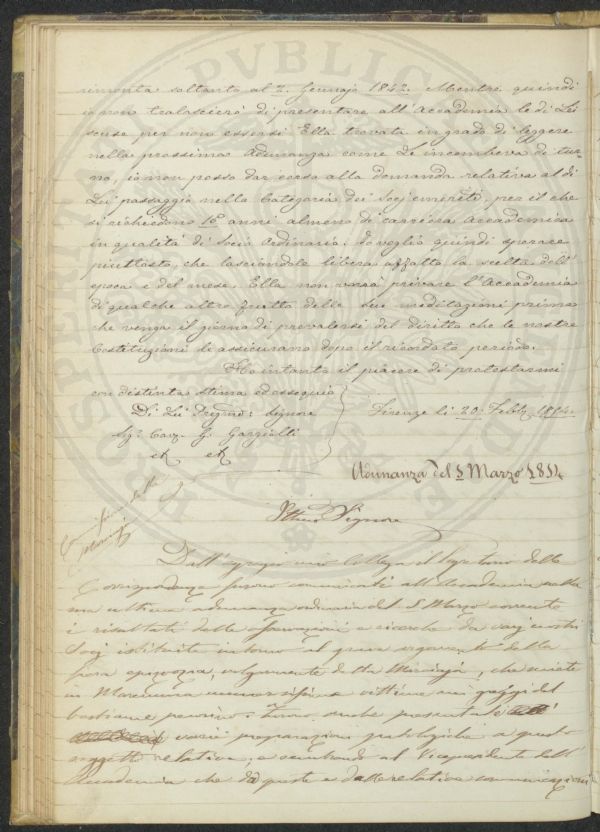 rimonta soltanto al 2. Gennajo 1842. Mentre quindi
io non tralascierò di presentare all'Accademia le di Lei
scuse per non essersi Ella trovata in grado di leggere
nella prossima Adunanza come Le incombeva di tur
no, io non posso dar corso alla domanda relativa al di
Lei passaggio nella Categoria dei Socj emeriti, per il che
si richiedono 10 anni almeno di carriera Accademica
in qualità di Socio Ordinario. Io voglio quindi sperare
piuttosto, che lasciandole libera affatto la scelta dell'
epoca e del mese, Ella non vorrà privare l'Accademia
di qualche altro frutto delle sue meditazioni prima
che venga il giorno di prevalersi del diritto che le nostre
Costituzioni le assicurano dopo il ricordato periodo.
Ho intanto il piacere di protestarmi
con distinta stima ed ossequio
Di Lei Pregmo: Signore
Firenze li 20. Febb.
Sig. Cav. G. Garzialli
Adunanza del 5 Marzo
Commissione della
Moriagia
Illmo Signore
Dall'egregio mio Collega il Segretario delle
Corrispondenze furono comunicati all'Accademia nella
sua ultima adunanza ordinaria del 5 Marzo corrente
i resultati delle osservazioni e ricerche da varj nostri
Socj istituite intorno al grave argomento della
fiera epizoozia, volgarmente detta Moriagia, che miete
in Maremma numerosissime vittime nei greggi del
bestiame pecorino. Furono anche presentate
varie preparazioni patologiche a questo
soggetto relative, e sembrando al Vicepresidente dell'
Accademia che da queste e dalle relative comunicazioni